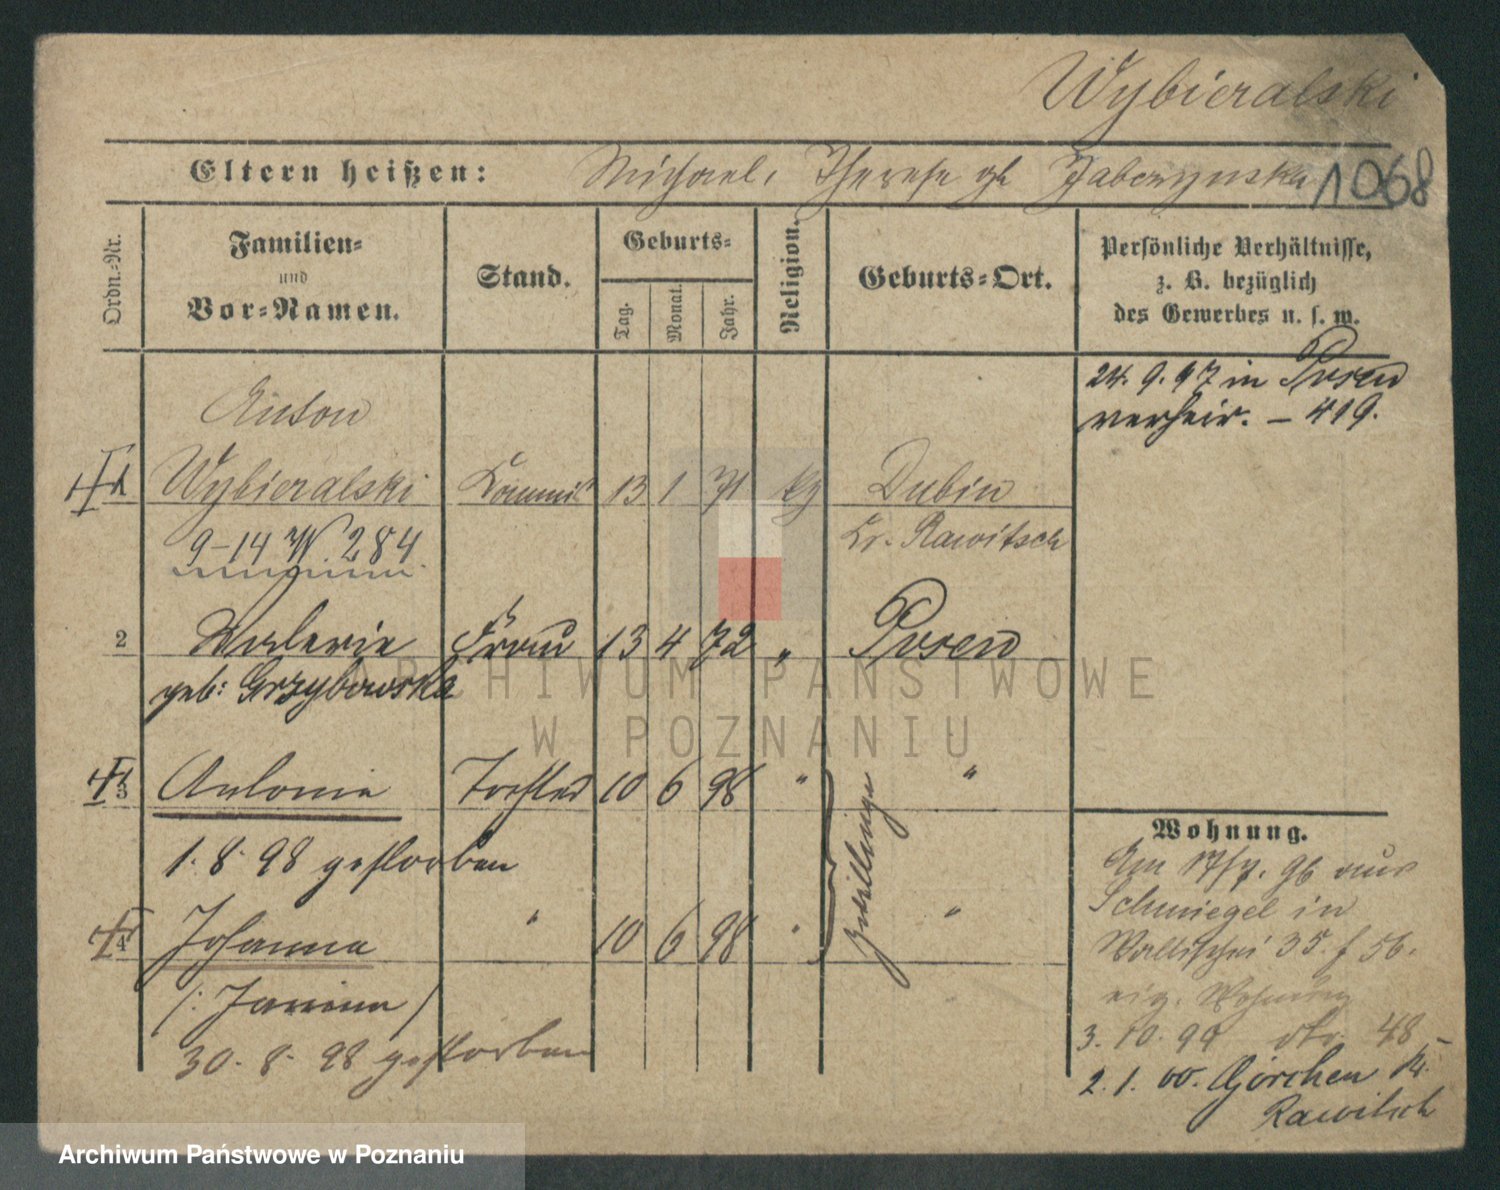 Wybieralski
Eltern heißen: Michael, Therese gb Jabczynska 1068
Ordn.=Nr.
Familien=
und
Vor=Namen.
Stand.
Geburts=
Tag.
Monat.
Jahr.
Religion.
Geburts=Ort.
Persönliche Verhältnisse,
z. B. bezüglich
des Gewerbes u. s. w.
24. 9. 97 in Posen
verheir. – 419.
Anton
1 Wybieralski Kommis 13 1 71 kg Dubin
Kr. Rawitsch
9–14 W. 284
2 Valerie Frau 13 4 72 " Posen
geb: Grzybowska
3 Antonie Tochter 10 6 98 " "
1. 8. 98 gestorben
Zwillinge
4 Johanna " 10 6 98 " "
/: Janina /
30. 8. 98 gestorben
Wohnung.
Am 17/7. 96 aus
Schmiegel in
Wallischei 35. f 56.
eig. Wohnung
3. 10. 99 dto 48
2. 1. 00. Görchen Kr.
Rawitsch
ARCHIWUM PAŃSTWOWE
W POZNANIU
Archiwum Państwowe w Poznaniu